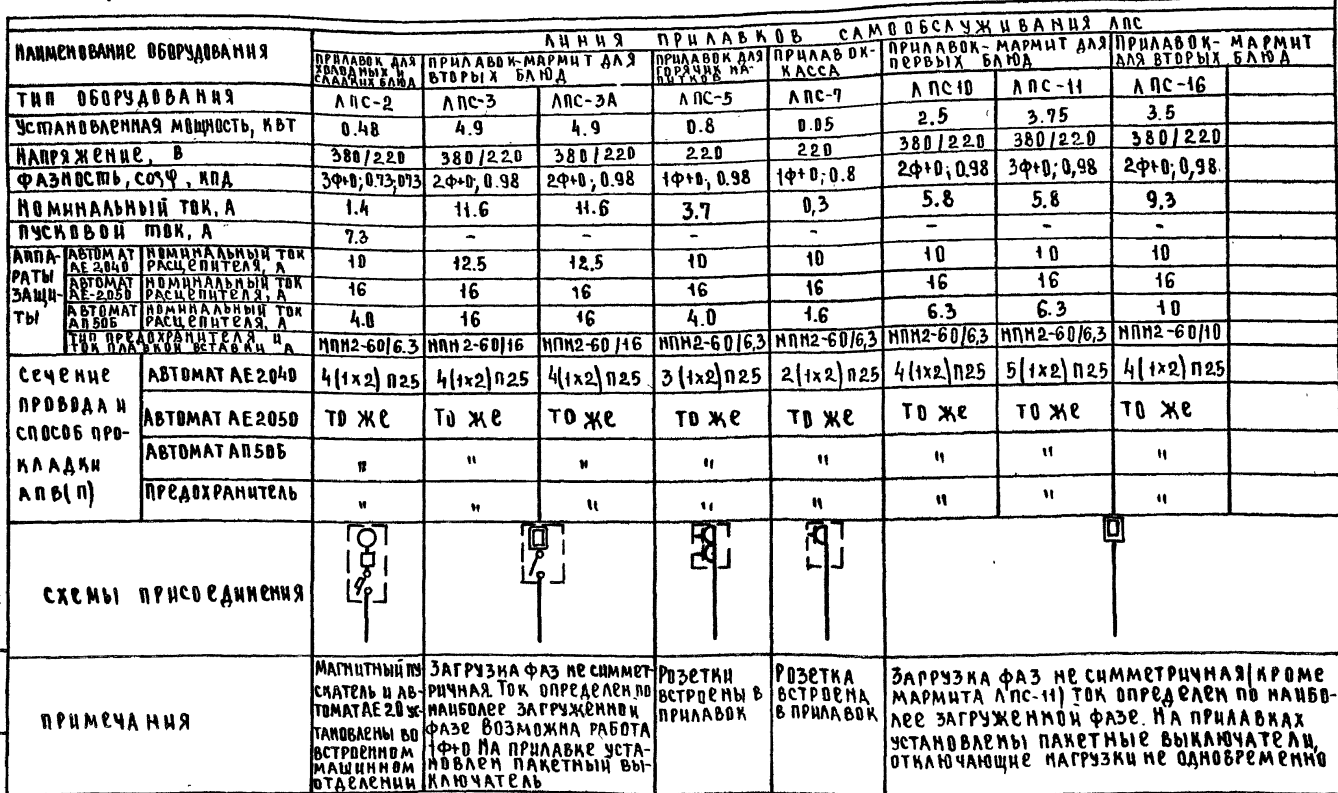 ЛИНИЯ ПРИЛАВКОВ САМООБСЛУЖИВАНИЯ ЛПС
НАИМЕНОВАНИЕ ОБОРУДОВАНИЯ
ПРИЛАВОК ДЛЯ ХОЛОДНЫХ И СЛАДКИХ БЛЮД
ПРИЛАВОК-МАРМИТ ДЛЯ ВТОРЫХ БЛЮД
ПРИЛАВОК ДЛЯ ГОРЯЧИХ НАПИТКОВ
ПРИЛАВОК-КАССА
ПРИЛАВОК-МАРМИТ ДЛЯ ПЕРВЫХ БЛЮД
ПРИЛАВОК-МАРМИТ ДЛЯ ВТОРЫХ БЛЮД
ТИП ОБОРУДОВАНИЯ ЛПС-2 ЛПС-3 ЛПС-3А ЛПС-5 ЛПС-7 ЛПС10 ЛПС-11 ЛПС-16
УСТАНОВЛЕННАЯ МОЩНОСТЬ, КВТ 0.48 4.9 4.9 0.8 0.05 2.5 3.75 3.5
НАПРЯЖЕНИЕ, В 380/220 380/220 380/220 220 220 380/220 380/220 380/220
ФАЗНОСТЬ, cosφ, КПД 3Ф+0; 0.73; 073 2Ф+0; 0.98 2Ф+0; 0.98 1Ф+0; 0.98 1Ф+0; 0.8 2Ф+0; 0.98 3Ф+0; 0,98 2Ф+0; 0,98.
НОМИНАЛЬНЫЙ ТОК, А 1.4 11.6 11.6 3.7 0,3 5.8 5.8 9,3
ПУСКОВОЙ ТОК, А 7.3 - - - - - - -
АППАРАТЫ ЗАЩИТЫ
АВТОМАТ АЕ2040 НОМИНАЛЬНЫЙ ТОК РАСЦЕПИТЕЛЯ, А 10 12.5 12,5 10 10 10 10 10
АВТОМАТ АЕ-2050 НОМИНАЛЬНЫЙ ТОК РАСЦЕПИТЕЛЯ, А 16 16 16 16 16 16 16 16
АВТОМАТ АП50Б НОМИНАЛЬНЫЙ ТОК РАСЦЕПИТЕЛЯ, А 4.0 16 16 4.0 1.6 6.3 6.3 10
ТИП ПРЕДОХРАНИТЕЛЯ И ТОК ПЛАВКОЙ ВСТАВКИ А НПН2-60/6.3 НПН2-60/16 НПН2-60/16 НПН2-60/6,3 НПН2-60/6,3 НПН2-60/6,3 НПН2-60/6,3 НПН2-60/10
СЕЧЕНИЕ ПРОВОДА И СПОСОБ ПРОКЛАДКИ АПВ(П)
АВТОМАТ АЕ2040 4(1х2) П25 4(1х2) П25 4(1х2) П25 3(1х2) П25 2(1х2) П25 4(1х2) П25 5(1х2) П25 4(1х2) П25
АВТОМАТ АЕ2050 ТО ЖЕ ТО ЖЕ ТО ЖЕ ТО ЖЕ ТО ЖЕ ТО ЖЕ ТО ЖЕ ТО ЖЕ
АВТОМАТ АП50Б " " " " " " " "
ПРЕДОХРАНИТЕЛЬ " " " " " " " "
СХЕМЫ ПРИСОЕДИНЕНИЯ
ПРИМЕЧАНИЯ
МАГНИТНЫЙ ПУ
СКАТЕЛЬ И АВ-
ТОМАТ АЕ20 УС-
ТАНОВЛЕНЫ ВО
ВСТРОЕННОМ
МАШИННОМ
ОТДЕЛЕНИИ
ЗАГРУЗКА ФАЗ НЕ СИММЕТ-
РИЧНАЯ. ТОК ОПРЕДЕЛЕН ПО
НАИБОЛЕЕ ЗАГРУЖЕННОЙ
ФАЗЕ ВОЗМОЖНА РАБОТА
1Ф+0 НА ПРИЛАВКЕ УСТА-
НОВЛЕН ПАКЕТНЫЙ ВЫ-
КЛЮЧАТЕЛЬ
РОЗЕТКИ
ВСТРОЕНЫ В
ПРИЛАВОК
РОЗЕТКА
ВСТРОЕНА
В ПРИЛАВОК
ЗАГРУЗКА ФАЗ НЕ СИММЕТРИЧНАЯ (КРОМЕ
МАРМИТА ЛПС-11) ТОК ОПРЕДЕЛЕН ПО НАИБО-
ЛЕЕ ЗАГРУЖЕННОЙ ФАЗЕ. НА ПРИЛАВКАХ
УСТАНОВЛЕНЫ ПАКЕТНЫЕ ВЫКЛЮЧАТЕЛИ,
ОТКЛЮЧАЮЩИЕ НАГРУЗКИ НЕ ОДНОВРЕМЕННО